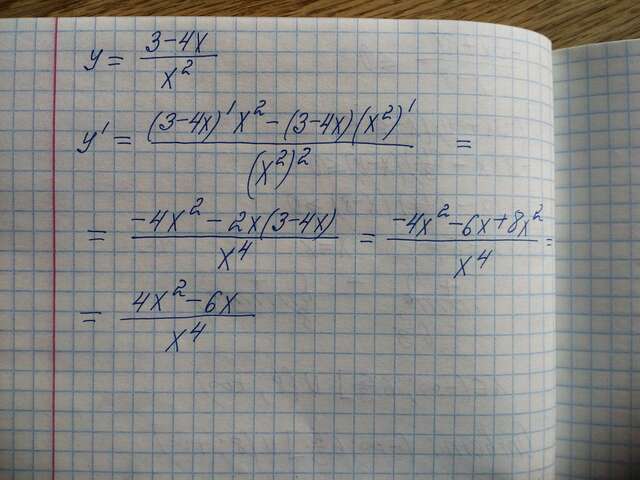 y = (3-4x)/x²
y' = ((3-4x)'x² - (3-4x)(x²)')/(x²)² =
= (-4x² - 2x(3-4x))/x⁴ = (-4x² - 6x + 8x²)/x⁴ =
= (4x² - 6x)/x⁴